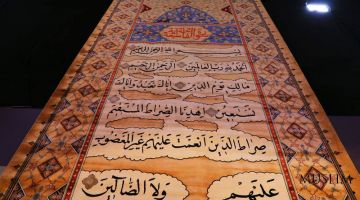 بسم الله الرحمن الرحيم
الحمد لله رب العالمين الرحمن الرحيم
مالك يوم الدين اياك نعبد واياك
نستعين اهدنا الصراط المستقيم
صراط الذين انعمت عليهم غير المغضوب
عليهم ولا الضالين
MUSLIM